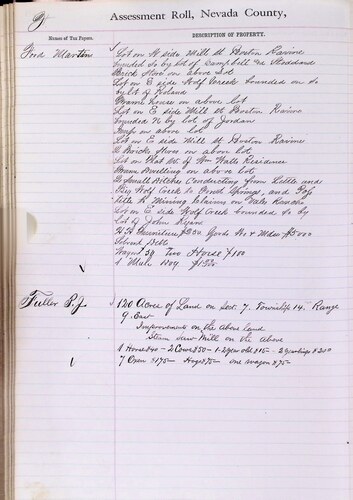 Assessment Roll, Nevada County,
Names of Tax Payers.
DESCRIPTION OF PROPERTY.
Ford Martin
Lot on W side Mill St Boston Ravine
bounded So by lot of Campbell &
Brick Store on above Lot
Lot on E side Wolf Creek bounded on So
by lot of Roland
Frame house on above lot
Lot on E side Mill St Boston Ravine
bounded N by lot of Jordan
Imps on above lot
Lot on E side Mill St Boston Ravine
Brick Store on above lot
Lot on Flat W of Wm Watts Residence
Frame Dwelling on above lot
Small Ditches Conducting from Little and
Big Wolf Creek to Springs, and Poss
title & Mining Claims on Ranche
Lot on E side Wolf Creek bounded So by
lot of John Ryan
Furniture $250 Goods W & Mdse $5000
Solvent Debts
Wagon 50 Two Horse $100
1 Mule
Fuller
120 Acres of Land on Sec. 7. Township 14. Range
9. East
Improvements on the above Land
Steam Saw Mill on the above
1 Horse $40 - 2 Cows $50 - 1-2 year old $15 - 2 yearlings $20
7 Oxen $175 Hogs $75 one wagon $75